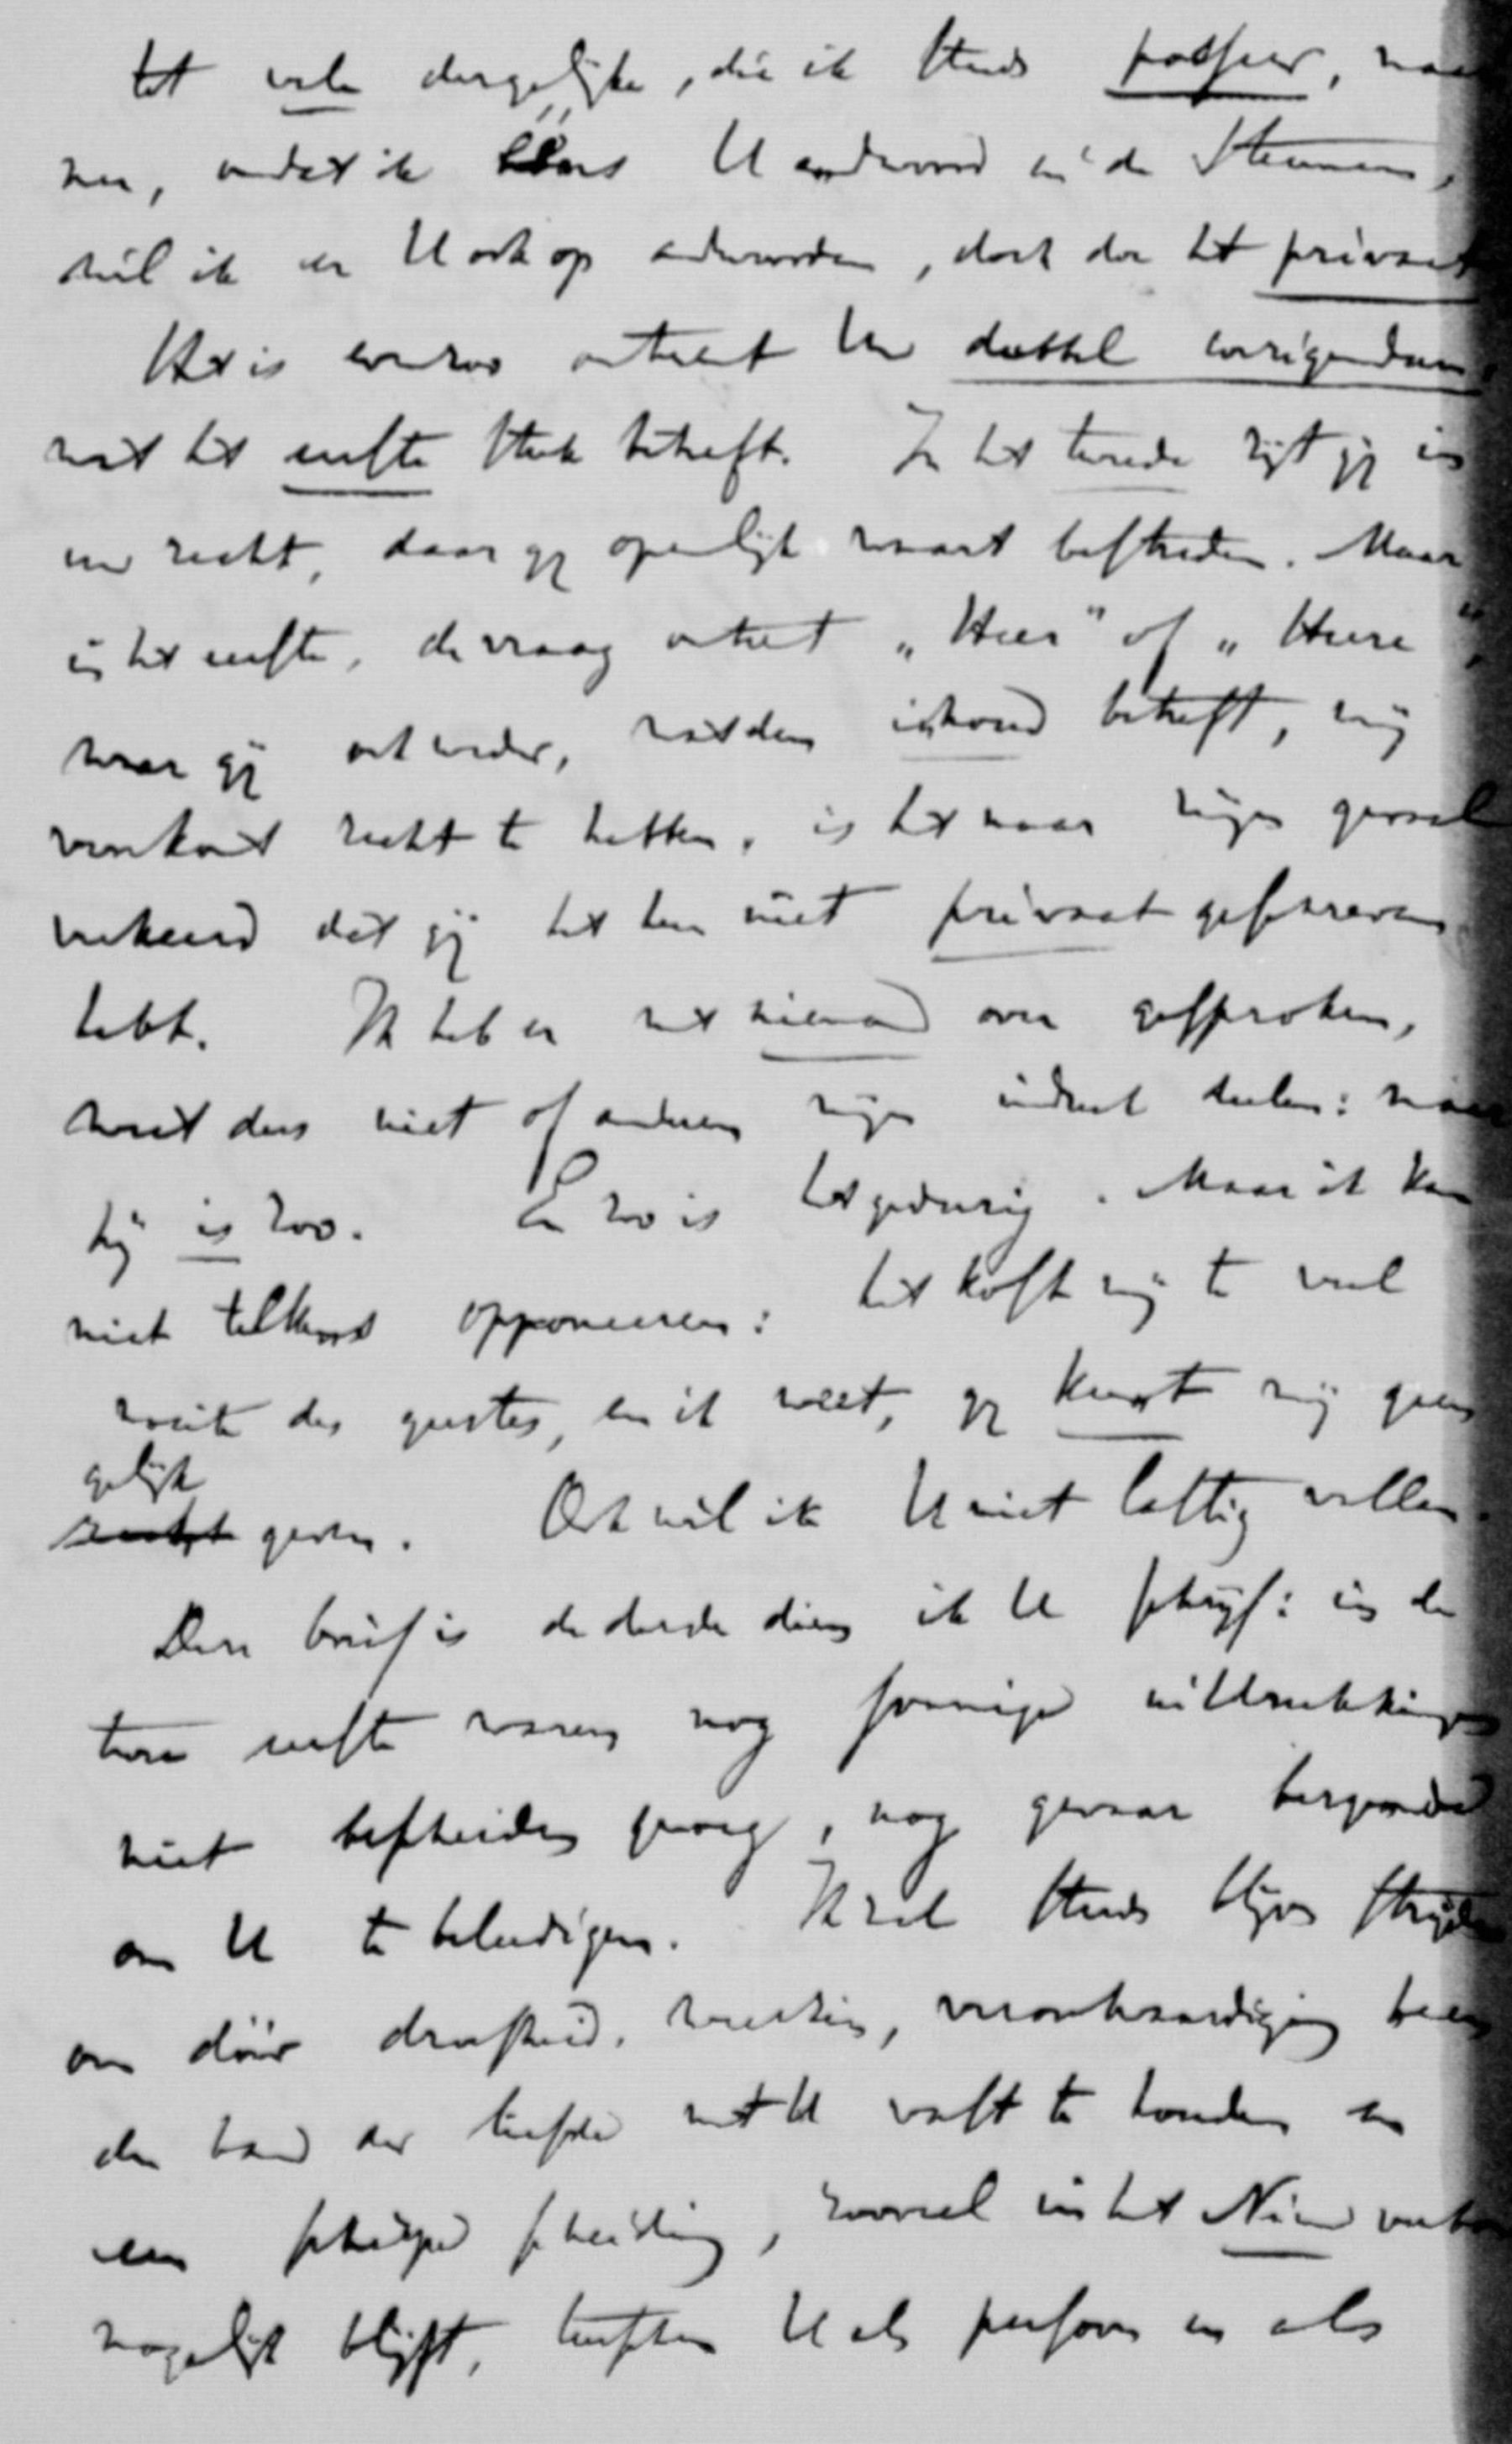 tot vele dergelijke, die ik steeds passeer, maar
nu, omdat ik eens U antwoord in de Stemmen,
wil ik er U ook op antwoorden, doch doe het privaat
Het is evenzoo omtrent Uw dubbel corrigendum,
wat het eerste stuk betreft. In het tweede zijt gij in
uw recht, daar gij openlijk waart bestreden. Maar
in het eerste, de vraag omtrent „Heer" of „Heere",
waar gij ook weder, wat den inhoud betreft, mij
voorkomt recht te hebben, is het naar mijn gevoel
verkeerd dat gij het hem niet privaat geschreven
hebt. Ik heb er met niemand over gesproken,
weet dus niet of anderen mijn indruk deelen: maar
hij is zoo. En zoo is het gedurig. Maar ik kan
niet telkens opponeeren: het kost mij te veel
moeite des geestes, en ik weet, gij kunt mij geen
gelijk
recht geven. Ook wil ik U niet lastig vallen.
Deze brief is de derde dien ik U schrijf: in de
twee eerste waren nog sommige uitdrukkingen
niet bescheiden genoeg, nog gevaar
om U te beleedigen. Ik zal steeds blijven strijden
om dóór droefheid, verontwaardiging heen
den band der liefde met U vast te houden en
een scheiding, zooveel in het Nieuw
mogelijk blijft, tusschen U als persoon en als